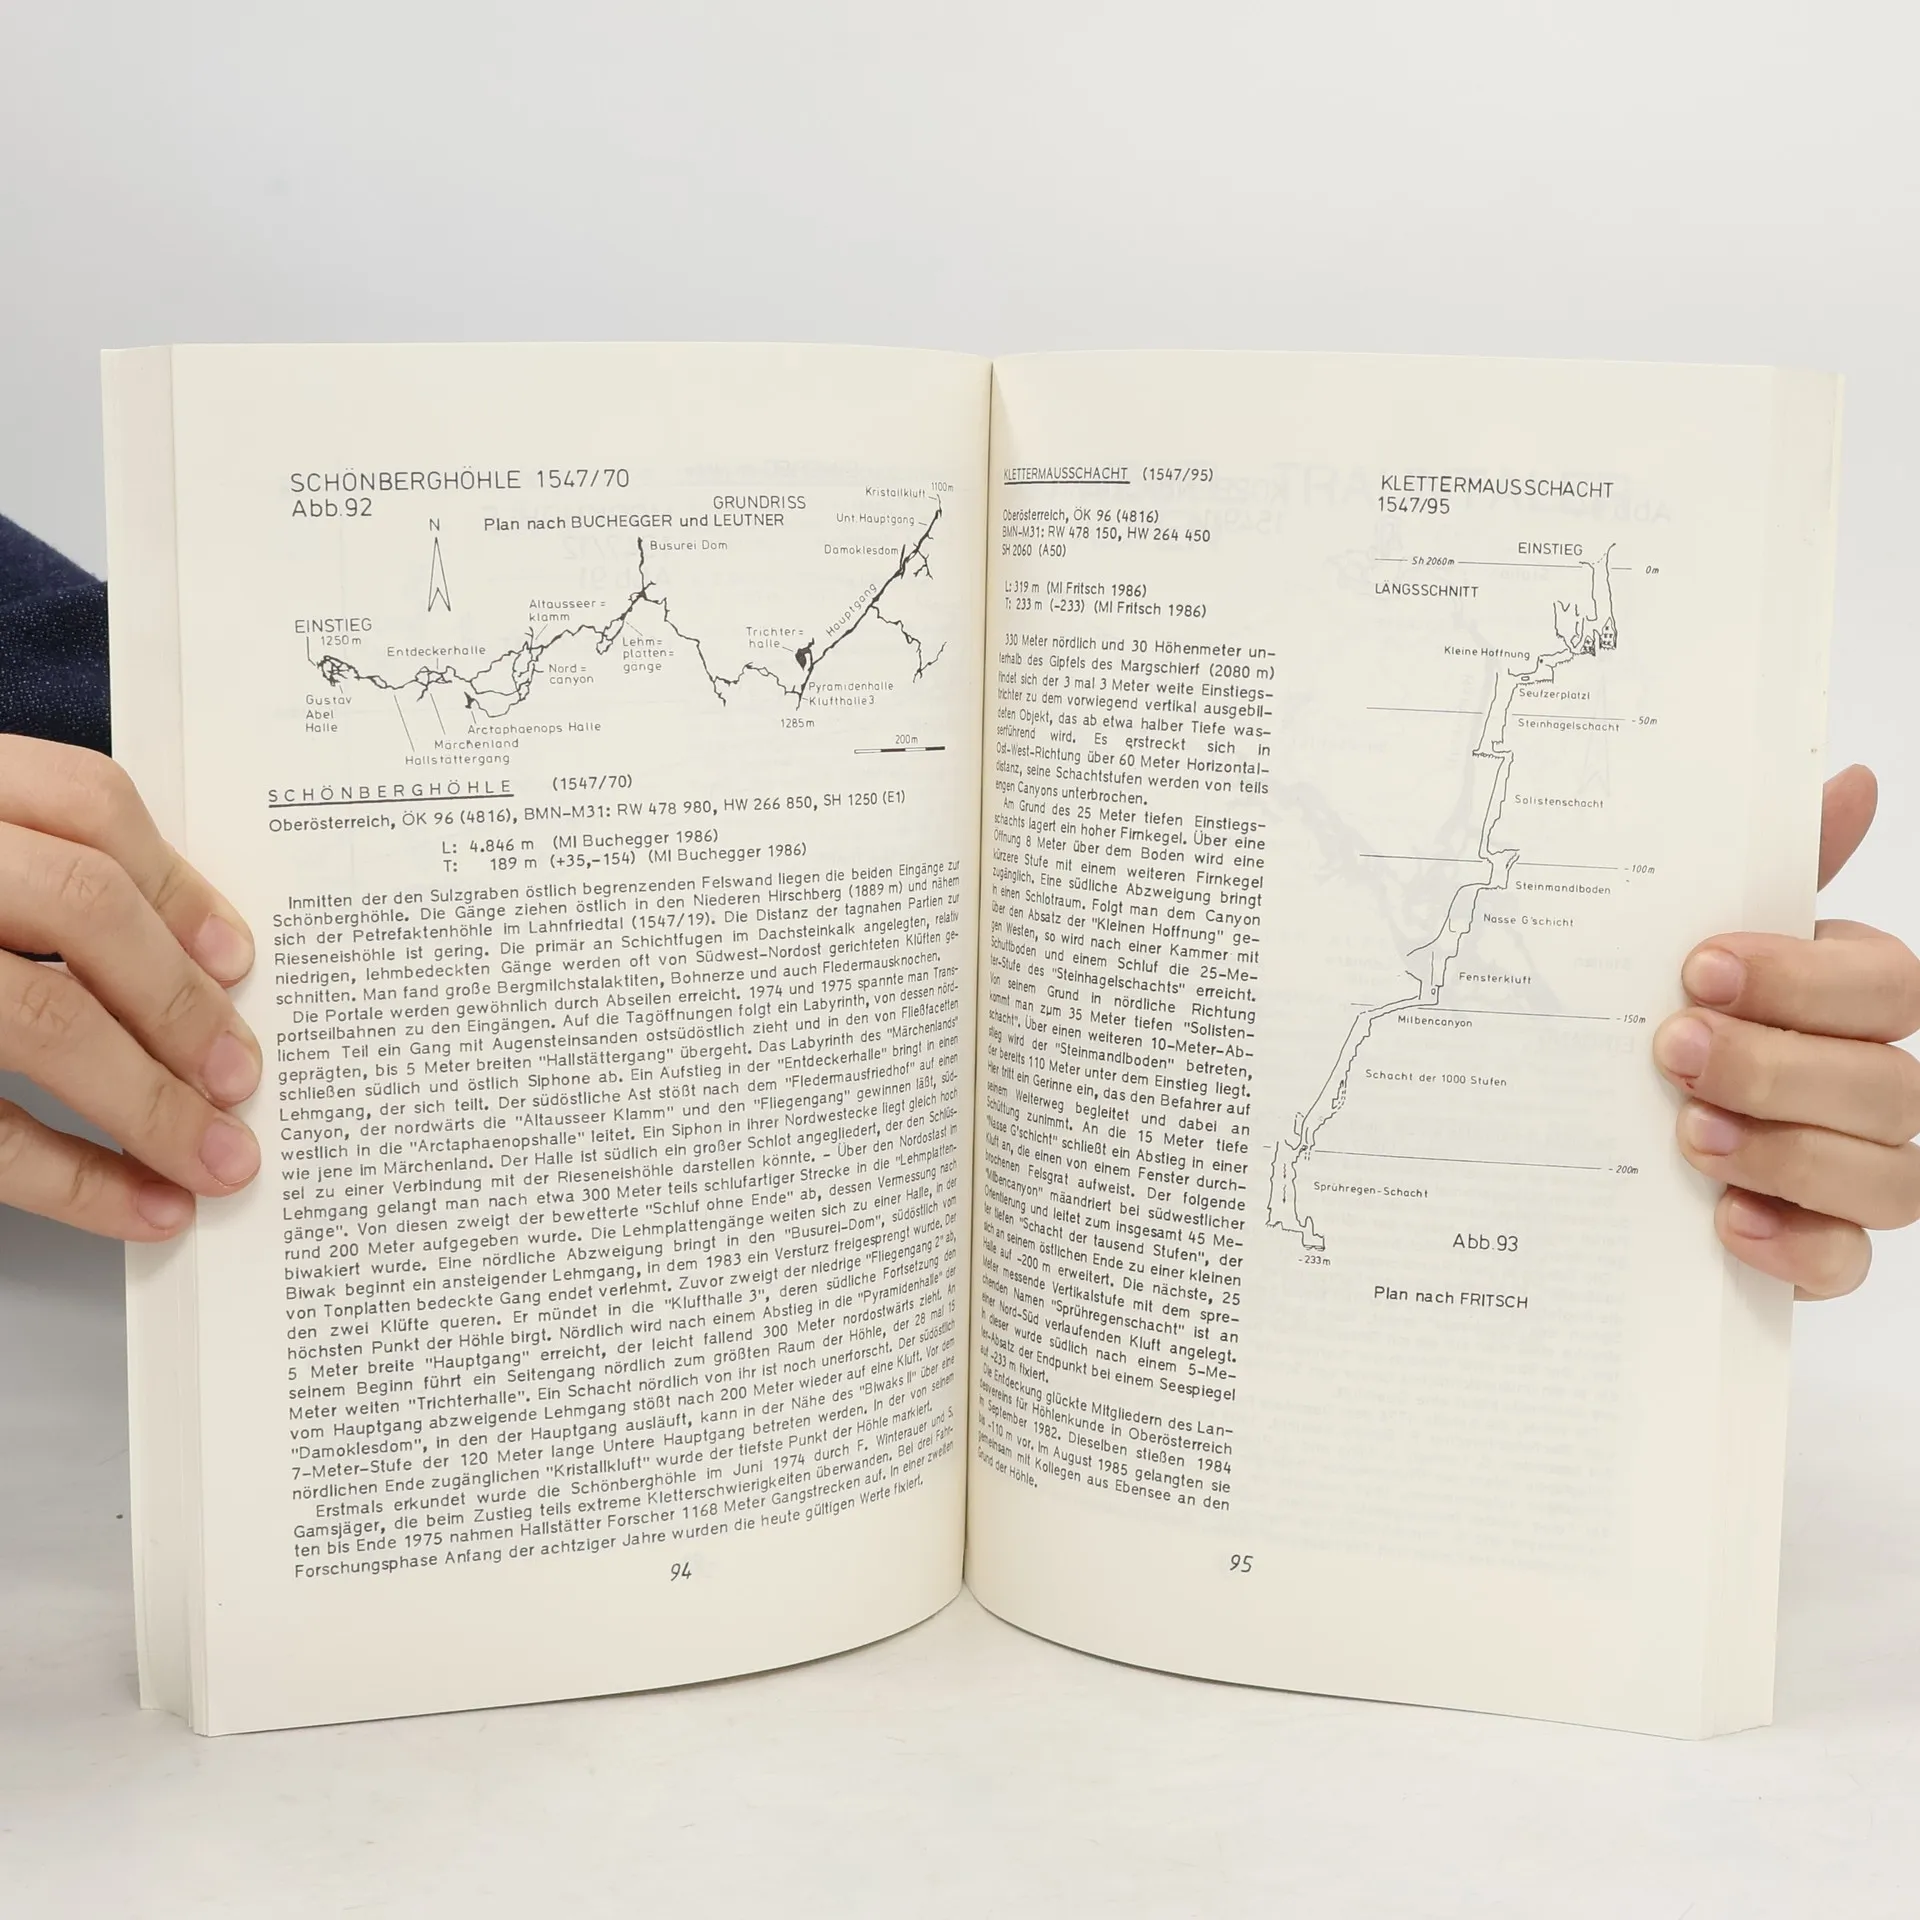 SCHÖNBERGHÖHLE 1547/70
Abb.92
GRUNDRISS
Plan nach BUCHEGGER und LEUTNER
N
Kristallkluft
1100m
Unt. Hauptgang
Damoklesdom
Busurei Dom
Hauptgang
Altausseer=
klamm
EINSTIEG
1250m
Entdeckerhalle
Lehm=
platten=
gänge
Trichter=
halle
Nord=
canyon
Gustav
Abel
Halle
Pyramidenhalle
Klufthalle3
1285m
Arctaphaenops Halle
Märchenland
Hallstättergang
200m
SCHÖNBERGHÖHLE (1547/70)
Oberösterreich, ÖK 96 (4816), BMN-M31: RW 478 980, HW 266 850, SH 1250 (E1)
L: 4.846 m (MI Buchegger 1986)
T: 189 m (+35,-154) (MI Buchegger 1986)
Inmitten der den Sulzgraben östlich begrenzenden Felswand liegen die beiden Eingänge zur
Schönberghöhle. Die Gänge ziehen östlich in den Niederen Hirschberg (1889 m) und nähern
sich der Petrefaktenhöhle im Lahnfriedtal (1547/19). Die Distanz der tagnahen Partien zur
Rieseneishöhle ist gering. Die primär an Schichtfugen im Dachsteinkalk angelegten, relativ
niedrigen, lehmbedeckten Gänge werden oft von Südwest-Nordost gerichteten Klüften ge-
schnitten. Man fand große Bergmilchstalaktiten, Bohnerze und auch Fledermausknochen.
Die Portale werden gewöhnlich durch Abseilen erreicht. 1974 und 1975 spannte man Trans-
portseilbahnen zu den Eingängen. Auf die Tagöffnungen folgt ein Labyrinth, von dessen nörd-
lichem Teil ein Gang mit Augensteinsanden ostsüdöstlich zieht und in den von Fließfacetten
geprägten, bis 5 Meter breiten "Hallstättergang" übergeht. Das Labyrinth des "Märchenlands"
schließen südlich und östlich Siphone ab. Ein Aufstieg in der "Entdeckerhalle" bringt in einen
Lehmgang, der sich teilt. Der südöstliche Ast stößt nach dem "Fledermausfriedhof" auf einen
Canyon, der nordwärts die "Altausseer Klamm" und den "Fliegengang" gewinnen läßt, süd-
westlich in die "Arctaphaenopshalle" leitet. Ein Siphon in ihrer Nordwestecke liegt gleich hoch
wie jene im Märchenland. Der Halle ist südlich ein großer Schlot angegliedert, der den Schlüs-
sel zu einer Verbindung mit der Rieseneishöhle darstellen könnte. - Über den Nordostast im
Lehmgang gelangt man nach etwa 300 Meter teils schlufartiger Strecke in die "Lehmplatten-
gänge". Von diesen zweigt der bewetterte "Schluf ohne Ende" ab, dessen Vermessung nach
rund 200 Meter aufgegeben wurde. Die Lehmplattengänge weiten sich zu einer Halle, in der
biwakiert wurde. Eine nördliche Abzweigung bringt in den "Busurei-Dom", südöstlich vom
Biwak beginnt ein ansteigender Lehmgang, in dem 1983 ein Versturz freigesprengt wurde. Der
von Tonplatten bedeckte Gang endet verlehmt. Zuvor zweigt der niedrige "Fliegengang 2" ab,
den zwei Klüfte queren. Er mündet in die "Klufthalle 3", deren südliche Fortsetzung den
höchsten Punkt der Höhle birgt. Nördlich wird nach einem Abstieg in die "Pyramidenhalle" der
5 Meter breite "Hauptgang" erreicht, der leicht fallend 300 Meter nordostwärts zieht. An
seinem Beginn führt ein Seitengang nördlich zum größten Raum der Höhle, der 28 mal 15
Meter weiten "Trichterhalle". Ein Schacht nördlich von ihr ist noch unerforscht. Der südöstlich
vom Hauptgang abzweigende Lehmgang stößt nach 200 Meter wieder auf eine Kluft. Vor dem
"Damoklesdom", in den der Hauptgang ausläuft, kann in der Nähe des "Biwaks II" über eine
7-Meter-Stufe der 120 Meter lange Untere Hauptgang betreten werden. In der von seinem
nördlichen Ende zugänglichen "Kristallkluft" wurde der tiefste Punkt der Höhle markiert.
Erstmals erkundet wurde die Schönberghöhle im Juni 1974 durch F. Winterauer und S.
Gamsjäger, die beim Zustieg teils extreme Kletterschwierigkeiten überwanden. Bei drei Fahr-
ten bis Ende 1975 nahmen Hallstätter Forscher 1168 Meter Gangstrecken auf. In einer zweiten
Forschungsphase Anfang der achtziger Jahre wurden die heute gültigen Werte fixiert.
94
KLETTERMAUSSCHACHT (1547/95)
Oberösterreich, ÖK 96 (4816)
BMN-M31: RW 478 150, HW 264 450
SH 2060 (A50)
L: 319 m (MI Fritsch 1986)
T: 233 m (-233) (MI Fritsch 1986)
330 Meter nördlich und 30 Höhenmeter un-
terhalb des Gipfels des Margschierf (2080 m)
findet sich der 3 mal 3 Meter weite Einstiegs-
trichter zu dem vorwiegend vertikal ausgebil-
deten Objekt, das ab etwa halber Tiefe was-
serführend wird. Es erstreckt sich in
Ost-West-Richtung über 60 Meter Horizontal-
distanz, seine Schachtstufen werden von teils
engen Canyons unterbrochen.
Am Grund des 25 Meter tiefen Einstiegs-
schachts lagert ein hoher Firnkegel. Über eine
Öffnung 8 Meter über dem Boden wird eine
kürzere Stufe mit einem weiteren Firnkegel
zugänglich. Eine südliche Abzweigung bringt
in einen Schlotraum. Folgt man dem Canyon
über den Absatz der "Kleinen Hoffnung" ge-
gen Westen, so wird nach einer Kammer mit
Schuttboden und einem Schluf die 25-Me-
ter-Stufe des "Steinhagelschachts" erreicht.
Von seinem Grund in nördliche Richtung
kommt man zum 35 Meter tiefen "Solisten-
schacht". Über einen weiteren 10-Meter-Ab-
stieg wird der "Steinmandlboden" betreten,
der bereits 110 Meter unter dem Einstieg liegt.
Hier tritt ein Gerinne ein, das den Befahrer auf
seinem Weiterweg begleitet und dabei an
Schüttung zunimmt. An die 15 Meter tiefe
"Nasse G'schicht" schließt ein Abstieg in einer
Kluft an, die einen von einem Fenster durch-
brochenen Felsgrat aufweist. Der folgende
"Milbencanyon" mäandriert bei südwestlicher
Orientierung und leitet zum insgesamt 45 Me-
ter tiefen "Schacht der tausend Stufen", der
sich an seinem östlichen Ende zu einer kleinen
Halle auf -200 m erweitert. Die nächste, 25
Meter messende Vertikalstufe mit dem spre-
chenden Namen "Sprühregenschacht" ist an
einer Nord-Süd verlaufenden Kluft angelegt.
In dieser wurde südlich nach einem 5-Me-
ter-Absatz der Endpunkt bei einem Seespiegel
auf -233 m fixiert.
Die Entdeckung glückte Mitgliedern des Lan-
desvereins für Höhlenkunde in Oberösterreich
im September 1982. Dieselben stießen 1984
bis -110 m vor. Im August 1985 gelangten sie
gemeinsam mit Kollegen aus Ebensee an den
Grund der Höhle.
KLETTERMAUSSCHACHT
1547/95
EINSTIEG
Sh 2060m
0m
LÄNGSSCHNITT
Kleine Hoffnung
Seufzerplatzl
Steinhagelschacht
-50m
Solistenschacht
-100m
Steinmandlboden
Nasse G'schicht
Fensterkluft
-150m
Milbencanyon
Schacht der 1000 Stufen
-200m
Sprühregen-Schacht
-233m
Abb.93
Plan nach FRITSCH
95